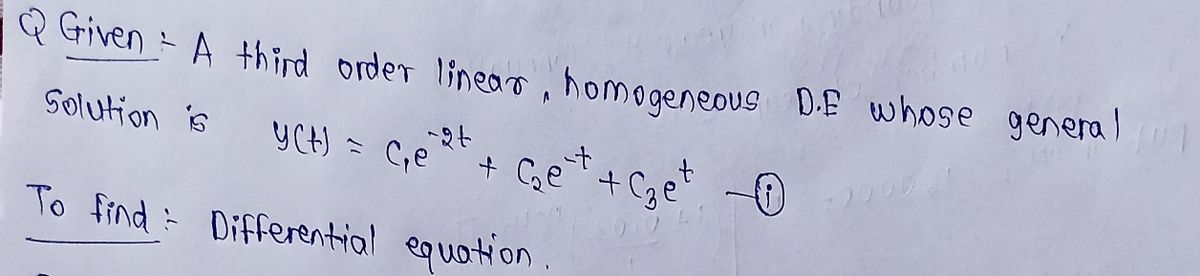 Q Given :- A third order linear, homogeneous D.E whose general
solution is y(t) = C₁e⁻²ᵗ + C₂e⁻ᵗ + C₃eᵗ —①
To find :- Differential equation.